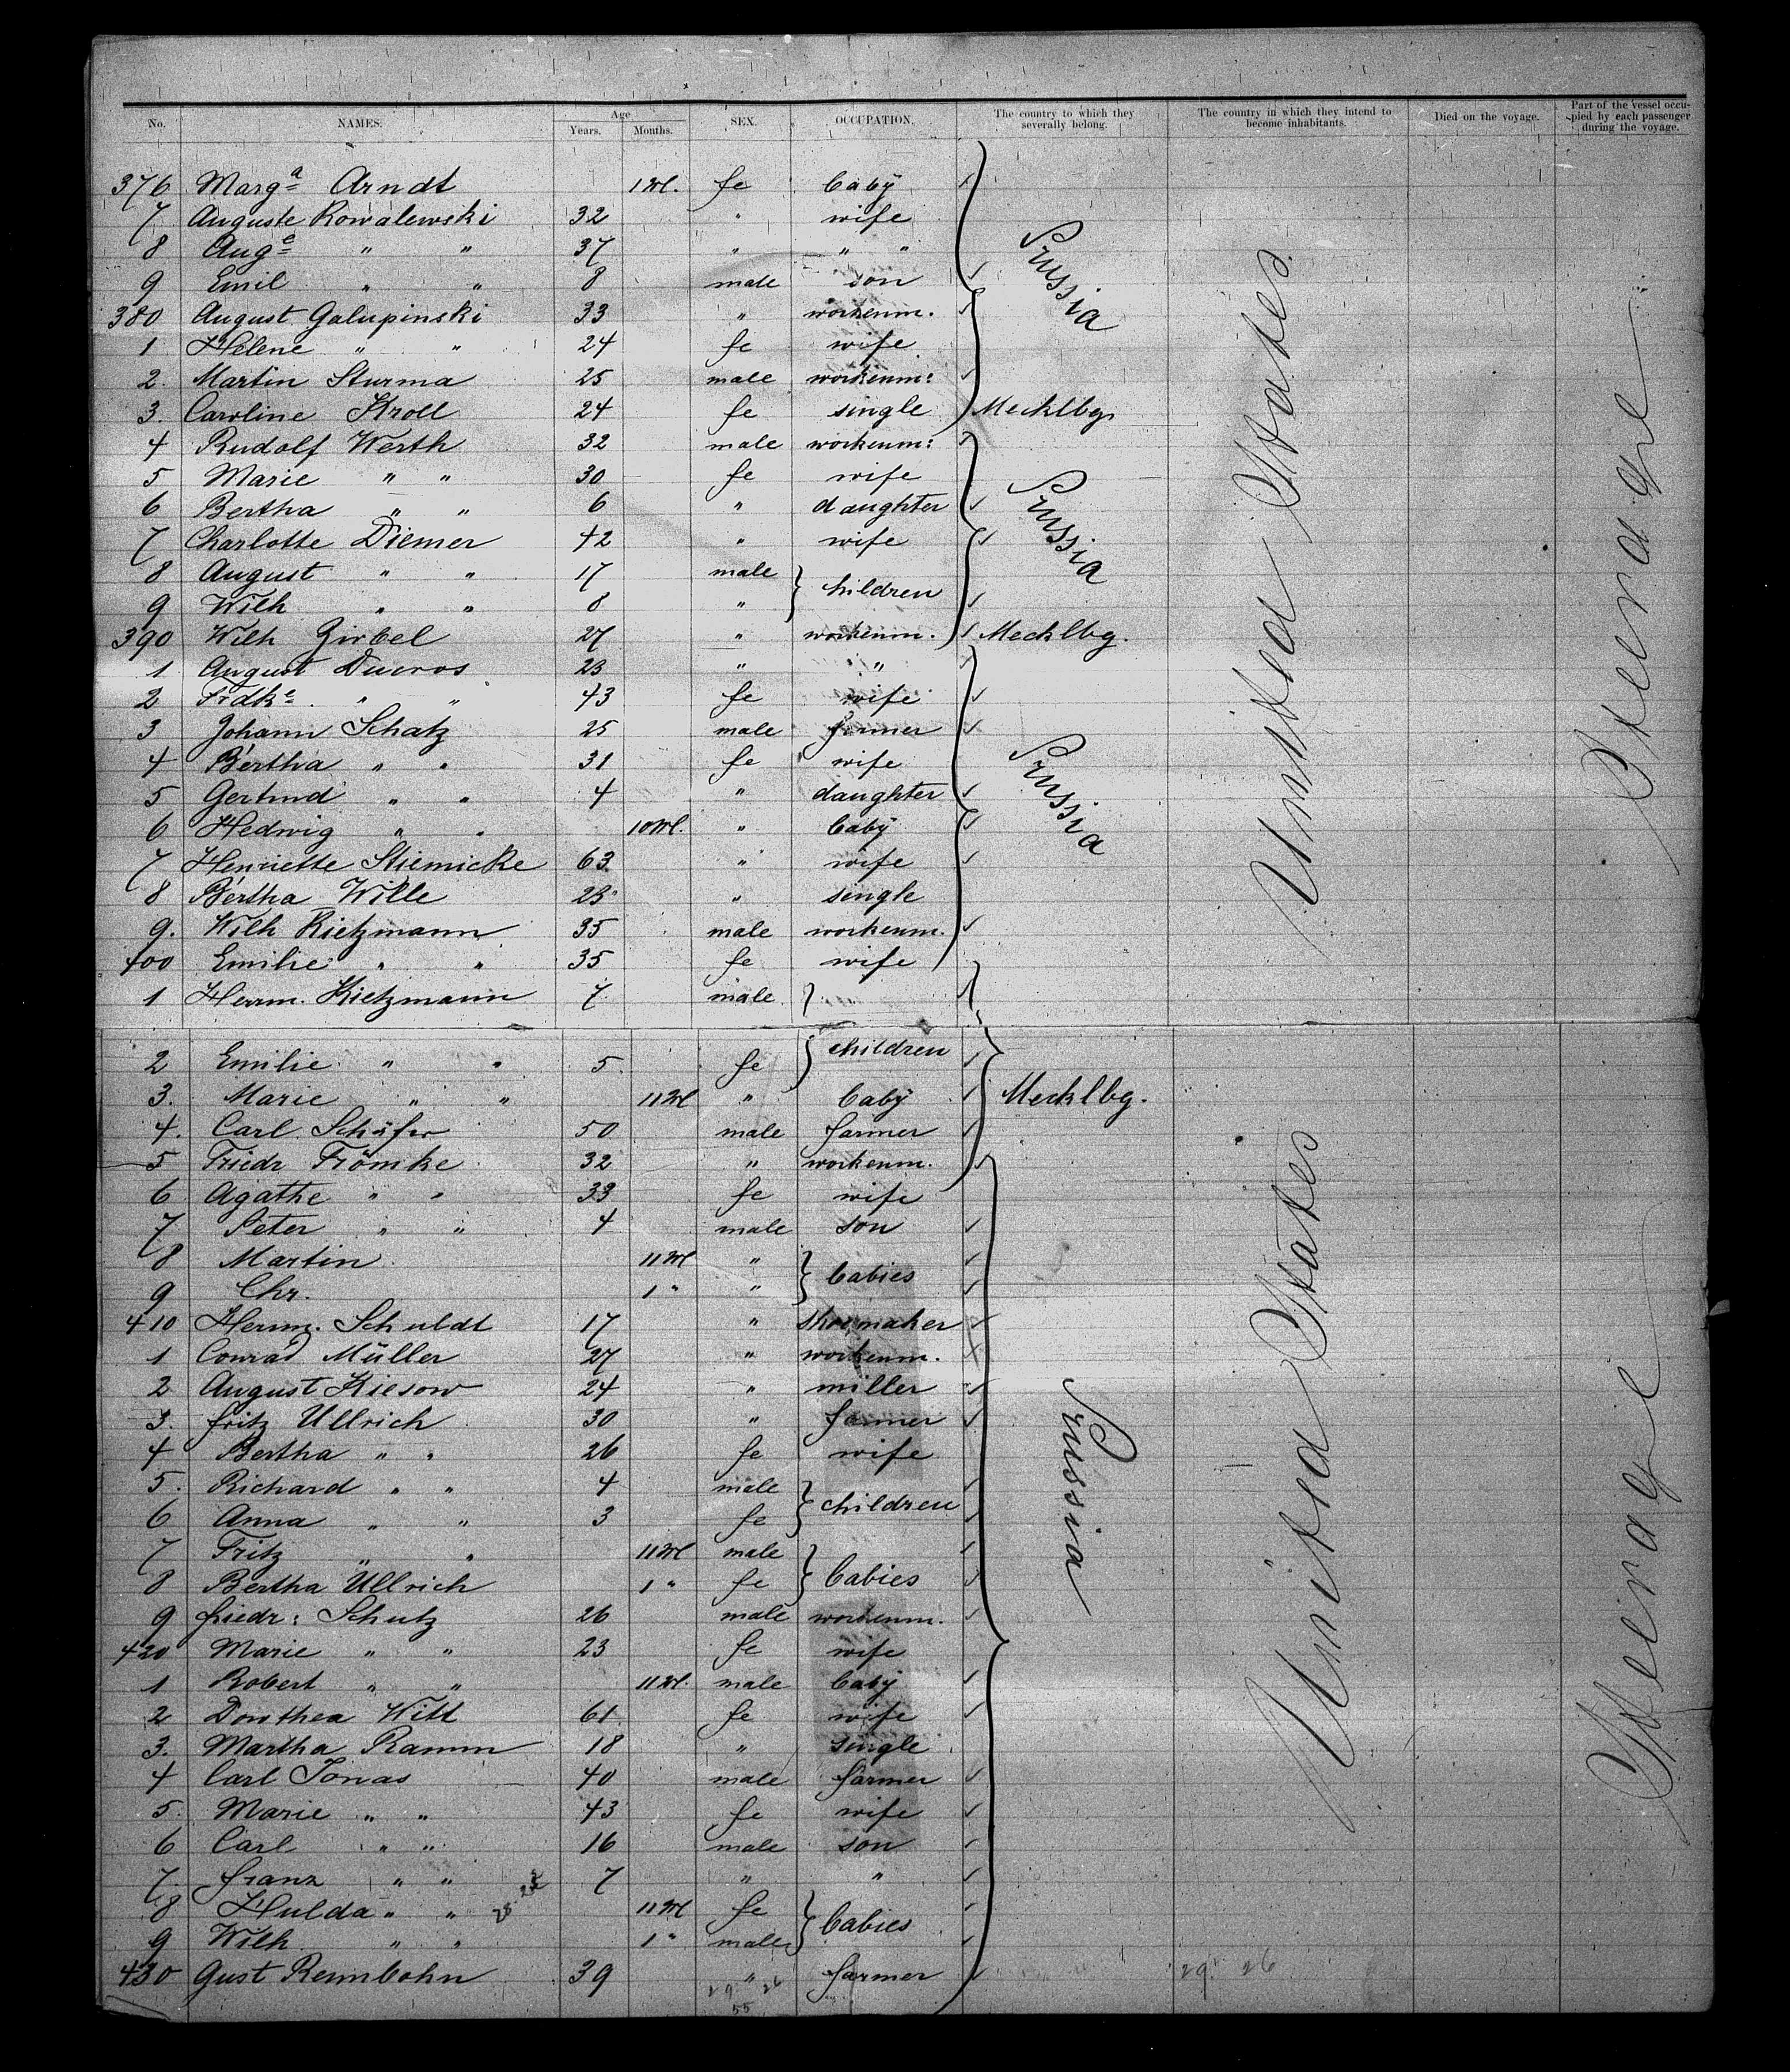 No. NAMES. Age Years. Months. SEX. OCCUPATION. The country to which they severally belong. The country in which they intend to become inhabitants. Died on the voyage. Part of the vessel occupied by each passenger during the voyage.
376 Margª Arndt 1 M. fe baby
7 Auguste Kowalewski 32 " wife
8 Augᵉ " " 37 " " "
9 Emil " " 8 male son
Prussia
380 August Galupinski 33 " workenm.
1 Helene " " 24 fe wife
2. Martin Sturma 25 male workenm:
3. Caroline Kroll 24 fe single Mecklbg.
4 Rudolf Werth 32 male workenm:
5 Marie " " 30 fe wife
6 Bertha " " 6 " daughter
Prussia
7 Charlotte Diemer 42 " wife
8 August " " 17 male children
9 Wilh " " 8 "
390 Wilh Zirbel 27 " workenm. Mecklbg.
1 August Ducros 23 " "
2 Frdkᵉ " " 43 fe wife
3 Johann Schatz 25 male farmer
4 Bertha " " 31 fe wife
5 Gertrud " " 4 " daughter
Prussia
6 Hedwig " " 10 M. " baby
7 Henriette Stiemicke 63 " wife
8 Bertha Wille 23 " single
9. Wilh Kietzmann 35 male workenm.
400 Emilie " " 35 fe wife
1 Herrm. Kietzmann 7 male
United States
Steerage
2 Emilie " " 5 fe children
3. Marie " " 11 M " baby Mecklbg.
4. Carl Schäfer 50 male farmer
5 Friedr Frömke 32 " workenm.
6 Agathe " " 33 fe wife
7 Peter " " 4 male son
8 Martin 11 M " babies
9 Chr. 1 " "
410 Herrm. Schuldt 17 " shoemaker
1 Conrad Müller 27 " workenm.
2 August Kiesow 24 " miller
3. Fritz Ullrich 30 " farmer
4 Bertha " " 26 fe wife
5. Richard " " 4 male children
6 Anna " " 3 fe
Prussia
7 Fritz " " 11 M male babies
8 Bertha Ullrich 1 " fe
9 Friedr: Schutz 26 male workenm.
420 Marie " " 23 fe wife
1 Robert " " 11 M. male baby
2 Dorothea Witt 61 fe wife
3. Martha Ramm 18 " single
4 Carl Jonas 40 male farmer
5. Marie " " 43 fe wife
6 Carl " " 16 male son
7. Franz " " 7 " "
8 Hulda " " 11 M fe babies
9 Wilh " " 1 " male
430 Gust Rembohn 39 " farmer
United States
Steerage
29 26
55
29 26